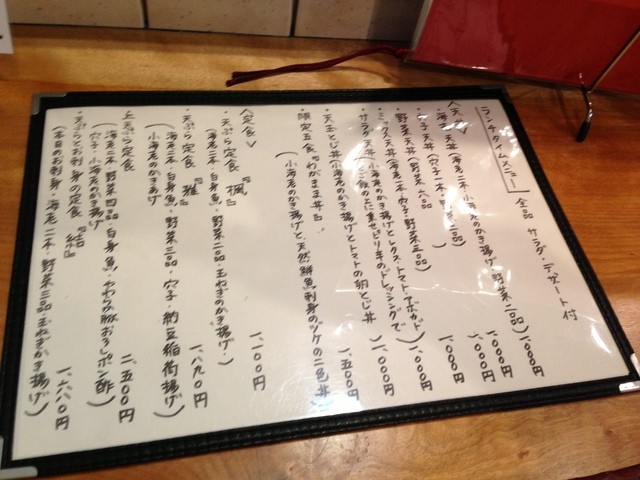 ランチタイムメニュー 全品 サラダ・デザート付
<天丼>
・海老天丼(海老二本・小海老のかき揚げ・野菜二品) 一、〇〇〇円
・穴子天丼(穴子一本・野菜二品) 一、〇〇〇円
・野菜天丼(野菜八品) 一、〇〇〇円
・ミックス天丼(海老二本・穴子・野菜三品) 一、〇〇〇円
・サラダ天丼(小海老のかき揚げとレタス・トマト・アボカド
ご飯の上に乗せピリ辛のドレッシングで) 一、〇〇〇円
・天玉とじ丼(小海老のかき揚げとトマトの卵とじ丼 一、〇〇〇円
・限定五食『わがまま丼』 一、五〇〇円
(小海老のかき揚げと天然鮮魚刺身のヅケの二色丼)
<定食>
・天ぷら定食『楓』 一、一〇〇円
(海老二本・白身魚・野菜二品・玉ねぎのかき揚げ)
・天ぷら定食『雅』 一、八九〇円
(海老二本・白身魚・野菜三品・穴子・納豆稲荷揚げ
小海老のかきあげ)
・上天ぷら定食 二、五〇〇円
(海老二本・野菜四品・白身魚・やわらか豚おろしポン酢
穴子・小海老のかき揚げ)
・天ぷらとお刺身の定食『結』 一、六八〇円
(本日のお刺身・海老二本・野菜三品・玉ねぎかき揚げ)